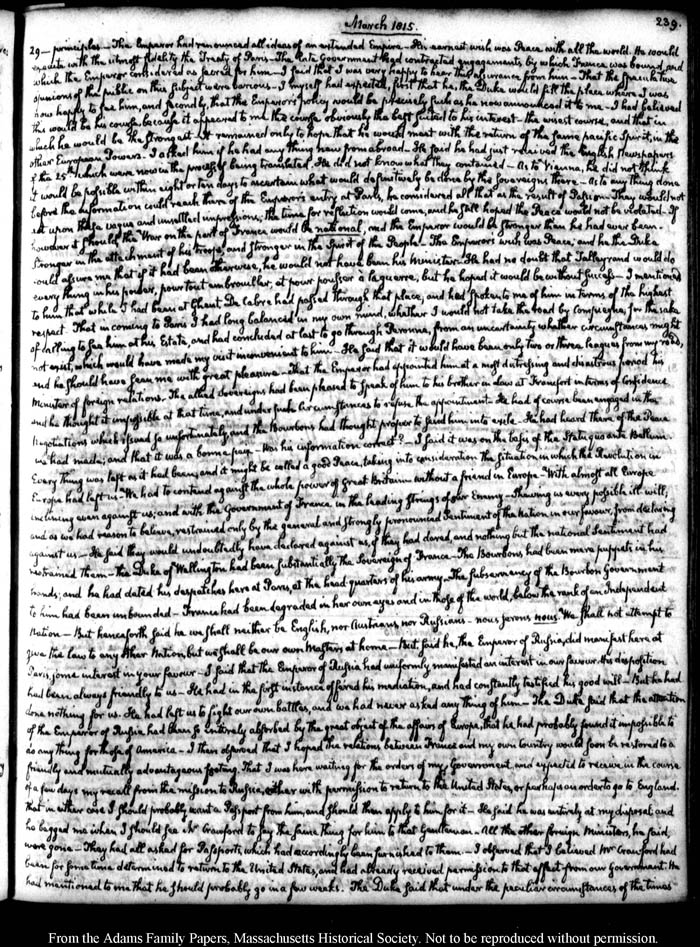 March 1815.
239.
29 — principles — The Emperor had renounced all ideas of an extended Empire — His earnest wish was Peace with all the world. He would
execute with the utmost fidelity the Treaty of Paris — The late Government had contracted engagements by which France was bound, and
which the Emperor considered as sacred for him — I said that I was very happy to hear this assurance from him — That the speculative
opinions of the public on this subject were various — I myself had expected, first that he, the Duke would fill the place where I was
now happy to see him, and secondly, that the Emperor's policy would be precisely such as he now announced it to me — I had believed
this would be his course, because it appeared to me the course obviously the best suited to his interest — the wisest course, and that in
which he would be the strongest. It remained only to hope that he would meet with the return of the same pacific Spirit, in the
other European Powers. I asked him if he had any thing new from abroad. He said he had just received the English Newspapers
of the 25th which were now in the process of being translated. He did not know what they contained — As to Vienna, he did not think
it would be possible within eight or ten days to ascertain what would definitively be done by the Sovereigns there — As to any thing done
before the information could reach there of the Emperor's entry at Paris, he considered all that as the result of Passion. They would not
act upon those vague and unsettled impressions; the time for reflection would come, and he still hoped the Peace would not be violated. If
however it should, the War on the part of France would be national, and the Emperor would be stronger than he had ever been —
Stronger in the attachment of his troops, and stronger in the Spirit of the People. The Emperor's wish was Peace; and he the Duke
could assure me that if it had been otherwise, he would not have been his Minister. He had no doubt that Talleyrand would do
every thing in his power, pour tout embrouiller, et pour pousser à la guerre, but he hoped it would be without success — I mentioned
to him, that while I had been at Ghent De Cabre had passed through that place, and had spoken to me of him in terms of the highest
respect. That in coming to Paris I had long balanced in my own mind, whether I would not take the road by Compiegne, for the sake
of calling to see him at his Estate, and had concluded at last to go through Peronne, from an uncertainty whether circumstances might
not exist, which would have made my visit inconvenient to him — He said that it would have been only two or three leagues from my road,
and he should have seen me with great pleasure — That the Emperor had appointed him at a most distressing and disastrous period his
Minister of foreign relations. The allied Sovereigns had been pleased to speak of him to his brother in law at Francfort in terms of Confidence
and he thought it impossible at that time, and under such circumstances to refuse the appointment. He had of course been engaged in the
negotiations which issued so unfortunately, and the Bourbons had thought proper to send him into exile. He had heard there of the Peace
we had made; and that it was a bonne paix — Was his information correct? — I said it was on the basis of the Status quo ante Bellum
Every thing was left as it had been; and it might be called a good Peace, taking into consideration the situation, in which the Revolution in
Europe had left us — We had to contend against the whole power of Great Britain without a friend in Europe — With almost all Europe
inclining even against us; and with the Government of France in the leading strings of our Enemy — Shewing us every possible ill will;
and as we had reason to believe, restrained only by the general and strongly pronounced Sentiment of the Nation in our favour, from declaring
against us — He said they would undoubtedly have declared against us, if they had dared, and nothing but the national Sentiment had
restrained them — the Duke of Wellington had been substantially the Sovereign of France — The Bourbons had been mere puppets in his
hands; and he had dated his despatches here at Paris, at the head quarters of his army. The subserviency of the Bourbon Government
to him had been unbounded — France had been degraded in her own eyes and in those of the world, below the rank of an Independent
Nation — But henceforth said he we shall neither be English, nor Austrians, nor Russians — nous serons nous. We shall not attempt to
give the law to any other Nation, but we shall be our own Masters at home — But, said he, the Emperor of Russia, did manifest here at
Paris, some interest in your favour — I said that the Emperor of Russia had uniformly manifested an interest in our favour. His disposition
had been always friendly to us — He had in the first instance offered his mediation, and had constantly testified his good will — But he had
done nothing for us. He had left us to fight our own battles, and we had never asked any thing of him — The Duke said that the attention
of the Emperor of Russia had been so entirely absorbed by the great object of the affairs of Europe, that he had probably found it impossible to
do any thing for those of America — I then observed that I hoped the relations between France and my own Country would soon be restored to a
friendly and mutually advantageous footing. That I was here waiting for the orders of my Government, and expected to receive in the course
of a few days my recall from the mission to Russia, either with permission to return to the United States, or perhaps an order to go to England.
that in either case I should probably want a Passport from him, and should then apply to him for it — He said he was entirely at my disposal and
he begged me when I should see Mr Crawford to say the same thing for him to that Gentleman — All the other foreign Ministers, he said,
were gone — They had all asked for Passports, which had accordingly been furnished to them — I observed that I believed Mr Crawford had
been for some time determined to return to the United States, and had already received permission to that effect from our Government. He
had mentioned to me that he should probably go in a few weeks. The Duke said that under the peculiar circumstances of the times
From the Adams Family Papers, Massachusetts Historical Society. Not to be reproduced without permission.